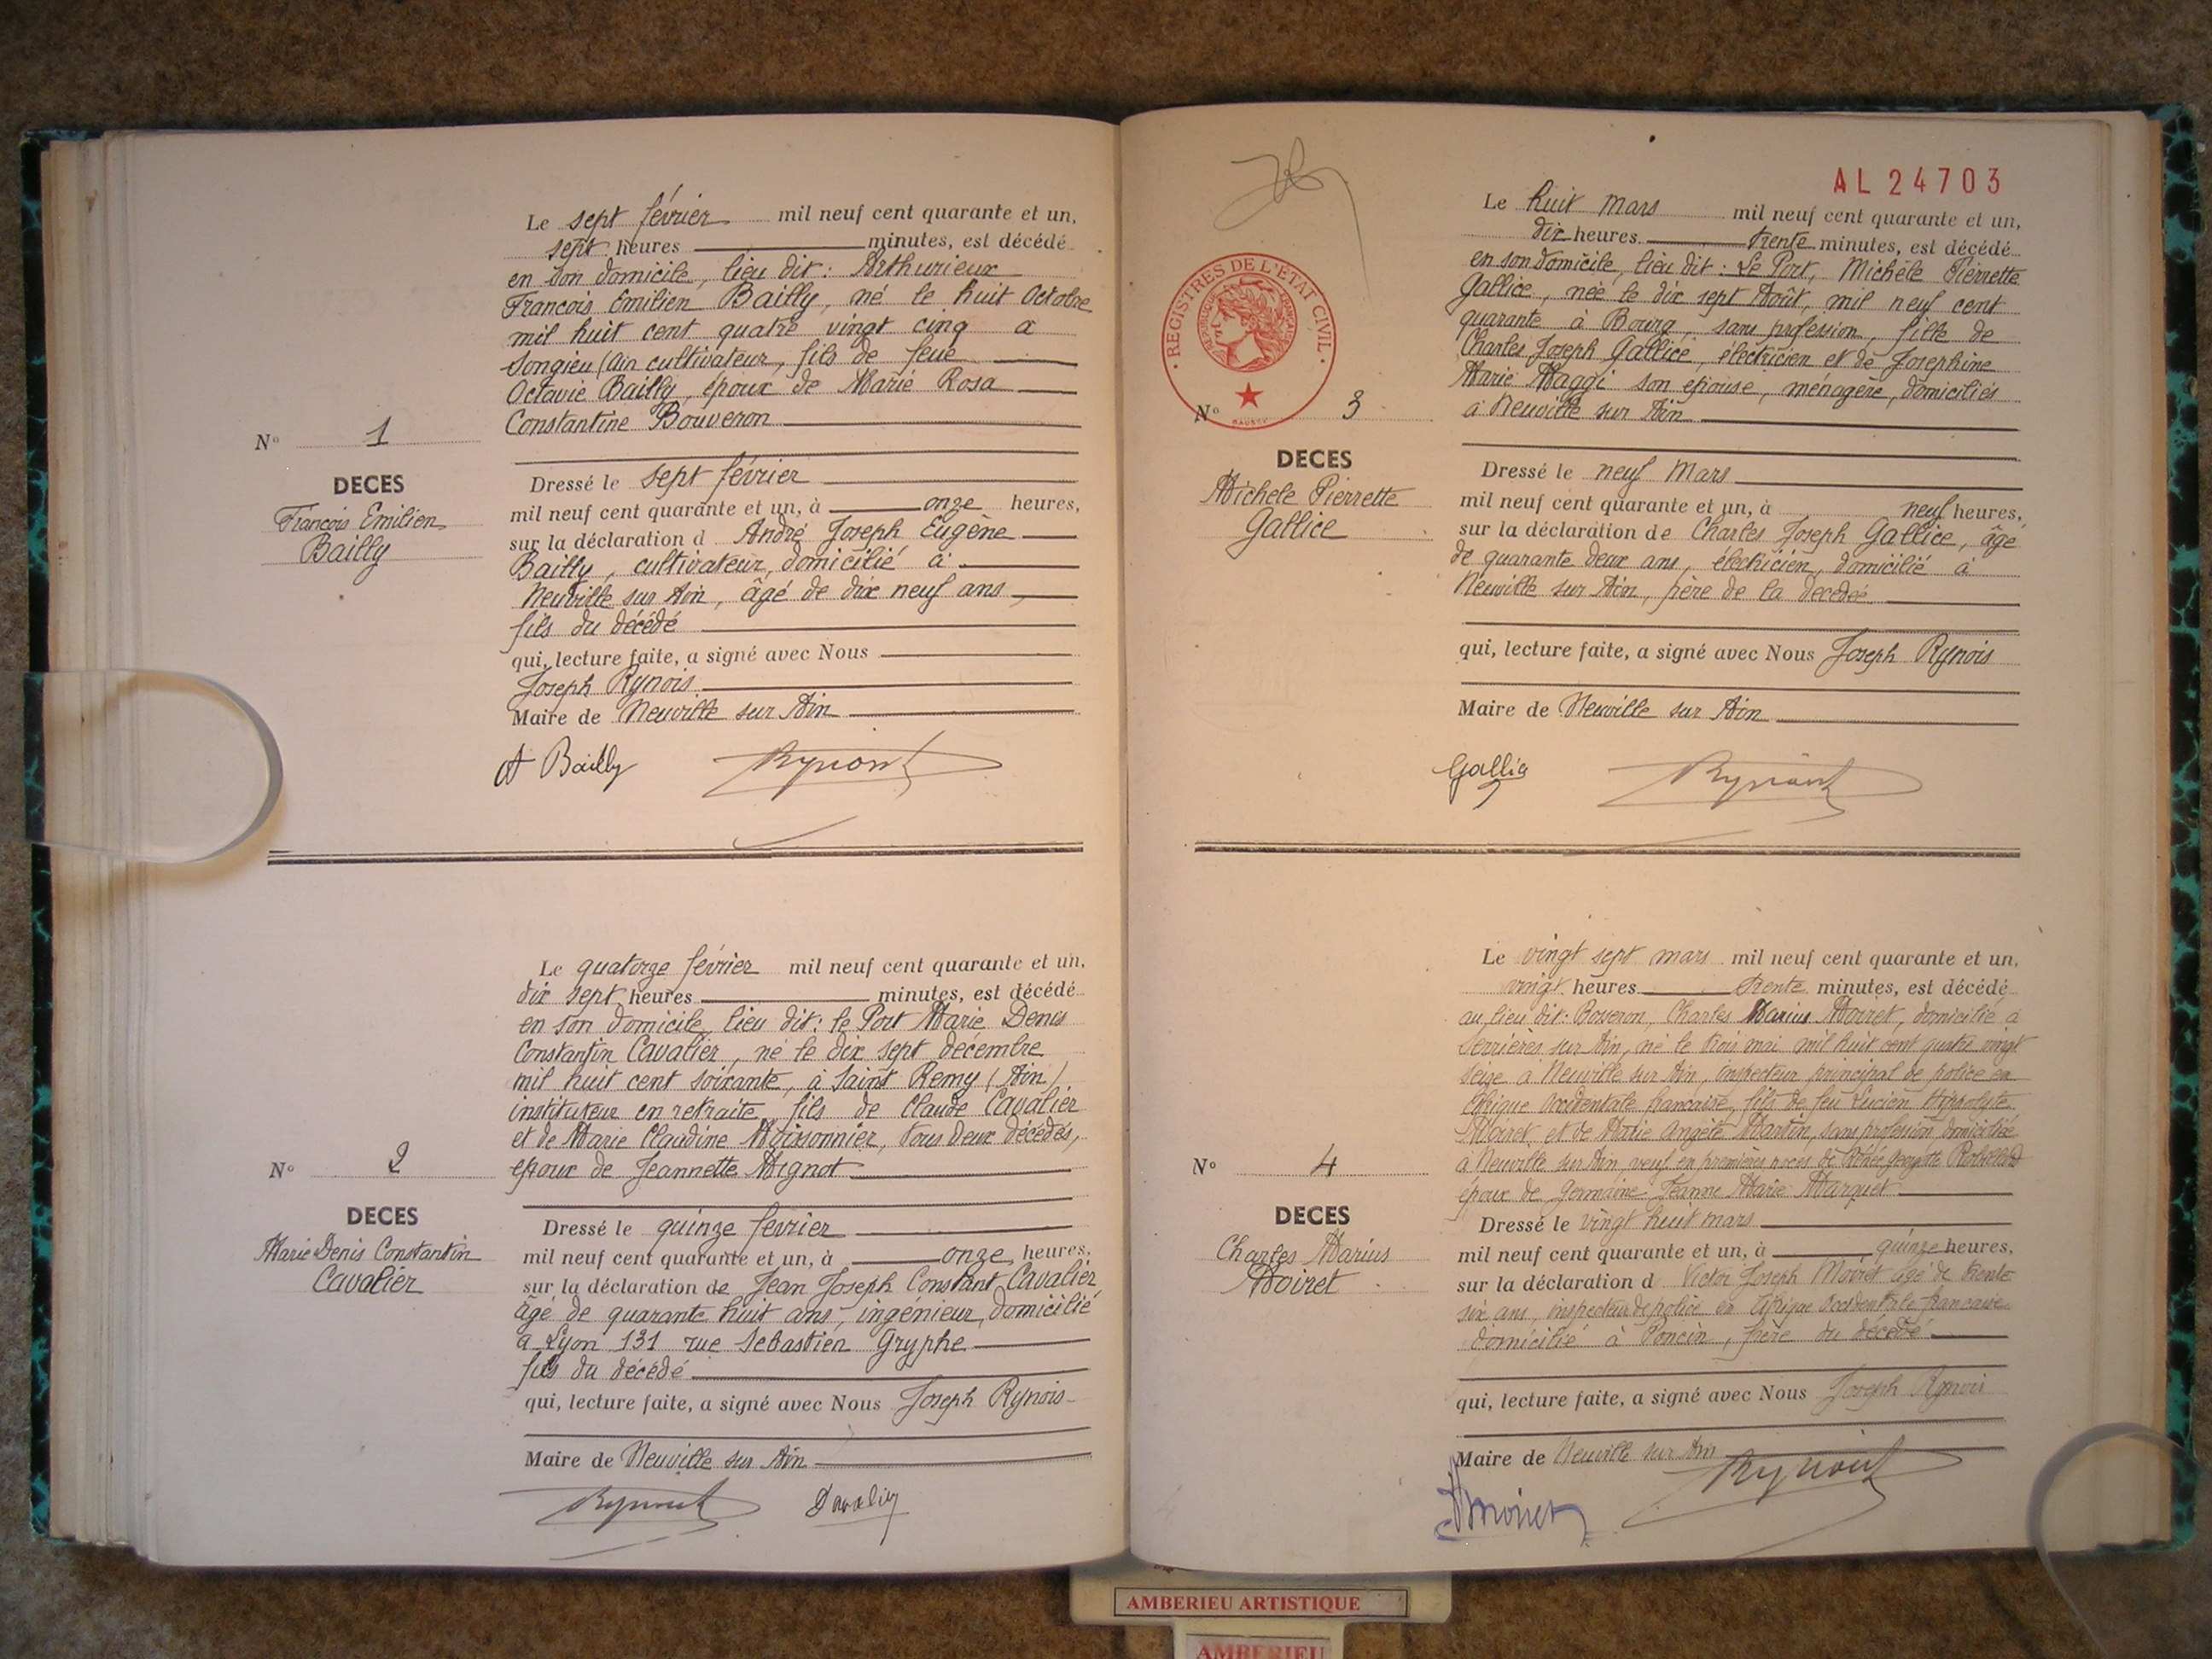 Le sept février mil neuf cent quarante et un,
sept heures minutes, est décédé
en son domicile, lieu dit: Arthurieux
François Emilien Bailly, né le huit Octobre
mil huit cent quatre vingt cinq a
Songieu (Ain cultivateur, fils de feue
Octavie Bailly, époux de Marie Rosa
Constantine Bouveron
N° 1
DECES
François Emilien
Bailly
Dressé le sept février
mil neuf cent quarante et un, à onze heures,
sur la déclaration d André Joseph Eugène
Bailly, cultivateur, domicilié à
Neuville sur Ain, âgé de dix neuf ans,
fils du décédé
qui, lecture faite, a signé avec Nous
Joseph Rynois
Maire de Neuville sur Ain
A Bailly
Le quatorze février mil neuf cent quarante et un,
dix sept heures minutes, est décédé
en son domicile, lieu dit: le Port Marie Denis
Constantin Cavalier, né le dix sept décembre
mil huit cent soixante, à Saint Remy (Ain)
instituteur en retraite, fils de Claude Cavalier
et de Marie Claudine Moissonnier, tous deux décédés,
époux de Jeannette Mignot
N° 2
DECES
Marie Denis Constantin
Cavalier
Dressé le quinze fevrier
mil neuf cent quarante et un, à onze heures,
sur la déclaration de Jean Joseph Constant Cavalier
âgé de quarante huit ans, ingénieur, domicilié
a Lyon 131 rue Sebastien Gryphe
fils du décédé
qui, lecture faite, a signé avec Nous Joseph Rynois
Maire de Neuville sur Ain
AL 24703
Le huit mars mil neuf cent quarante et un,
dix heures trente minutes, est décédé
en son domicile, lieu dit: Le Port, Michèle Pierrette
Gallice, née le dix sept Août, mil neuf cent
quarante à Bourg, sans profession, fille de
Charles Joseph Gallice, électricien et de Josephine
Marie Maggi son epouse, ménagère, domiciliés
à Neuville sur Ain
REGISTRES DE L'ETAT CIVIL
N° 3
DECES
Michele Pierrette
Gallice
Dressé le neuf Mars
mil neuf cent quarante et un, à neuf heures,
sur la déclaration de Charles Joseph Gallice, âgé
de quarante deux ans, électricien, domicilié à
Neuville sur Ain, père de la decedeé
qui, lecture faite, a signé avec Nous Joseph Rynois
Maire de Neuville sur Ain
Le vingt sept mars mil neuf cent quarante et un,
vingt heures trente minutes, est décédé
au lieu dit: Bosseron, Charles Marius Moiret, domicilié à
Serrières sur Ain, né le trois mai mil huit cent quatre vingt
seize a Neuville sur Ain, inspecteur principal de police en
Afrique Occidentale française, fils de feu Lucien Hippolyte
Moiret et de Marie Angèle Martin, sans profession domiciliée
à Neuville sur Ain, veuf en premières noces de Georgette
époux de Germaine Jeanne Marie Marquet
N° 4
DECES
Charles Marius
Moiret
Dressé le vingt huit mars
mil neuf cent quarante et un, à quinze heures,
sur la déclaration d Victor Joseph Moiret âgé de trente
six ans, inspecteur de police en Afrique Occidentale française
domicilié à Poncin, frère du décédé
qui, lecture faite, a signé avec Nous Joseph Rynois
Maire de Neuville sur Ain
AMBERIEU ARTISTIQUE
AMBERIEU